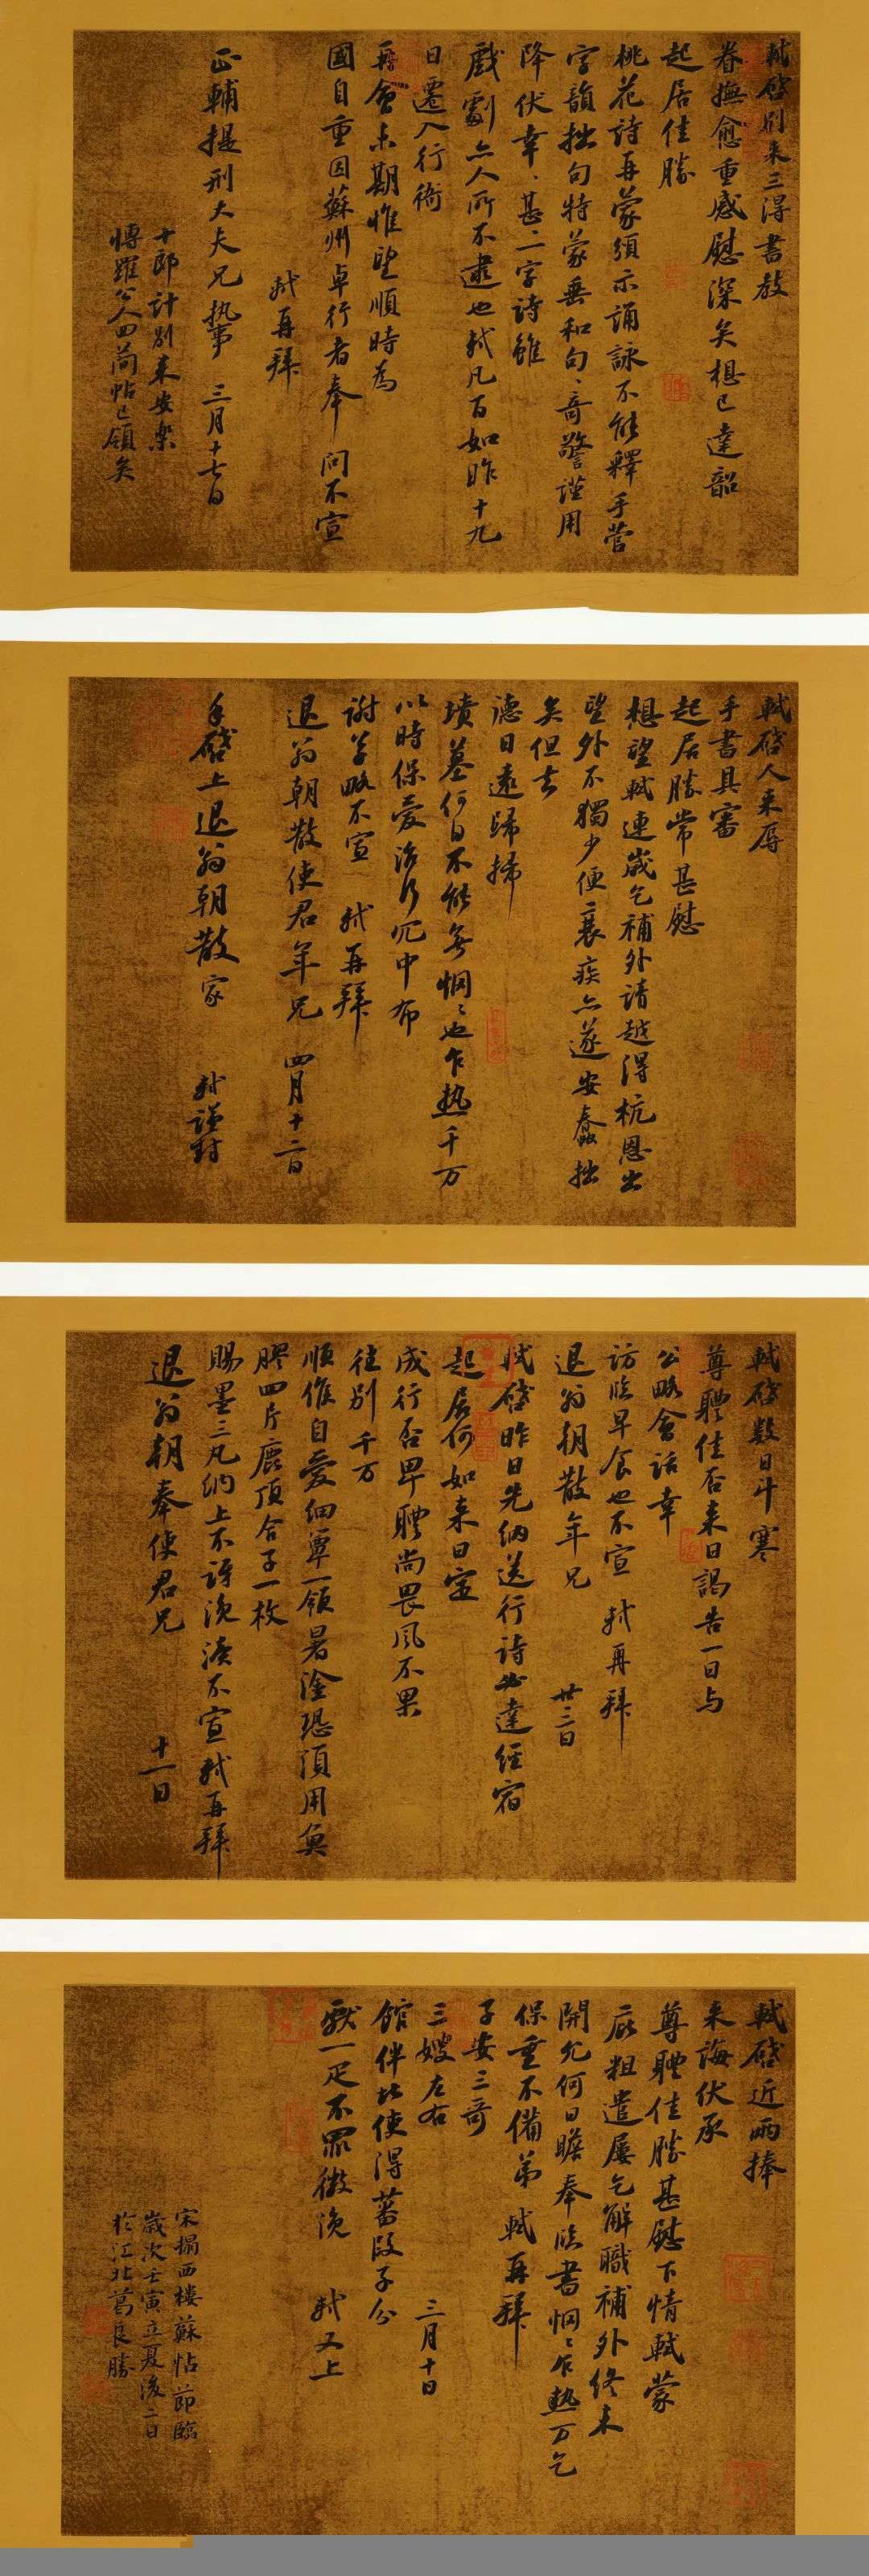 軾啓別来三得書教
眷撫愈重感慰深矣想已達韶
起居佳勝
桃花詩再蒙頒示誦詠不能釋手菅
字韻拙句特蒙垂和句〻奇警謹用
降伏幸〻甚〻二字詩雖
戲劇亦人所不逮也軾凡百如昨十九
日遷入行衙
再會未期惟望順時為
國自重因蘇州卓行者奉 問不宣
軾再拜
正輔提刑大夫兄執事 三月十七日
十郎計別来安樂
博羅公人回簡帖已領矣
軾啓人来辱
手書具審
起居勝常甚慰
想望軾連歲乞補外請越得杭恩出
望外不獨少便衰疾亦遂安蠢拙
矣但去
德日遠歸掃
墳墓何日不能無惘〻也乍熱千万
以時保愛治行冗中布
謝草略不宣 軾再拜
退翁朝散使君年兄 四月十二日
手啓上退翁朝散家 軾謹封
軾啓數日斗寒
尊體佳否来日謁告一日与
公略會話幸
訪臨早食也不宣 軾再拜
退翁朝散年兄 廿二日
軾啓昨日先納送行詩必達經宿
起居何如来日定
成行否卑體尚畏風不果
往別千万
順候自愛細簟一領暑塗恐須用魚
膠四片鹿頂合子一枚
賜墨三丸納上不訝浼瀆不宣軾再拜
退翁朝奉使君兄 十一日
軾啓近兩捧
来誨伏承
尊體佳勝甚慰下情軾蒙
庇粗遣屢乞解職補外終未
開允何日瞻奉臨書惘〻乍熱万乞
保重不備弟 軾再拜
子安三哥
三嫂左右 三月十日
館伴北使得蕃段子分
獻一疋不罪微浼 軾又上
宋搨西樓蘇帖節臨
歲次壬寅立夏後二日
於江北葛良勝